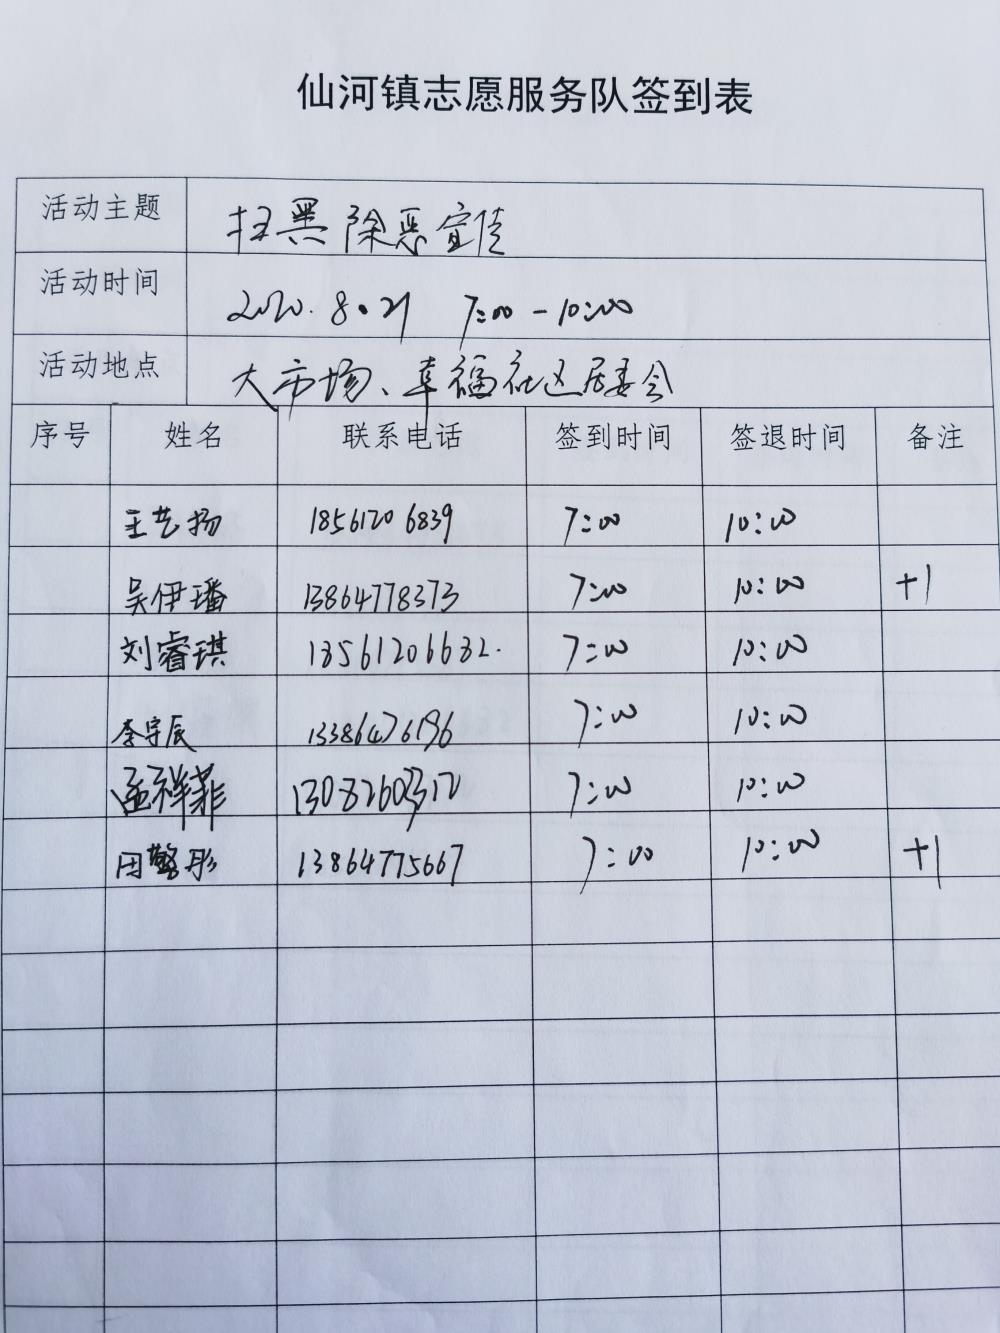 仙河镇志愿服务队签到表
活动主题 扫黑除恶宣传
活动时间 2020.8.21 7:00-10:00
活动地点 大市场、幸福社区居委会
序号 姓名 联系电话 签到时间 签退时间 备注
王艺扬 18561206839 7:00 10:00
吴伊璠 13864778373 7:00 10:00 +1
刘睿琪 13561206632. 7:00 10:00
李宇辰 13386476196 7:00 10:00
孟祥菲 7:00 10:00
13864775667 7:00 10:00 +1